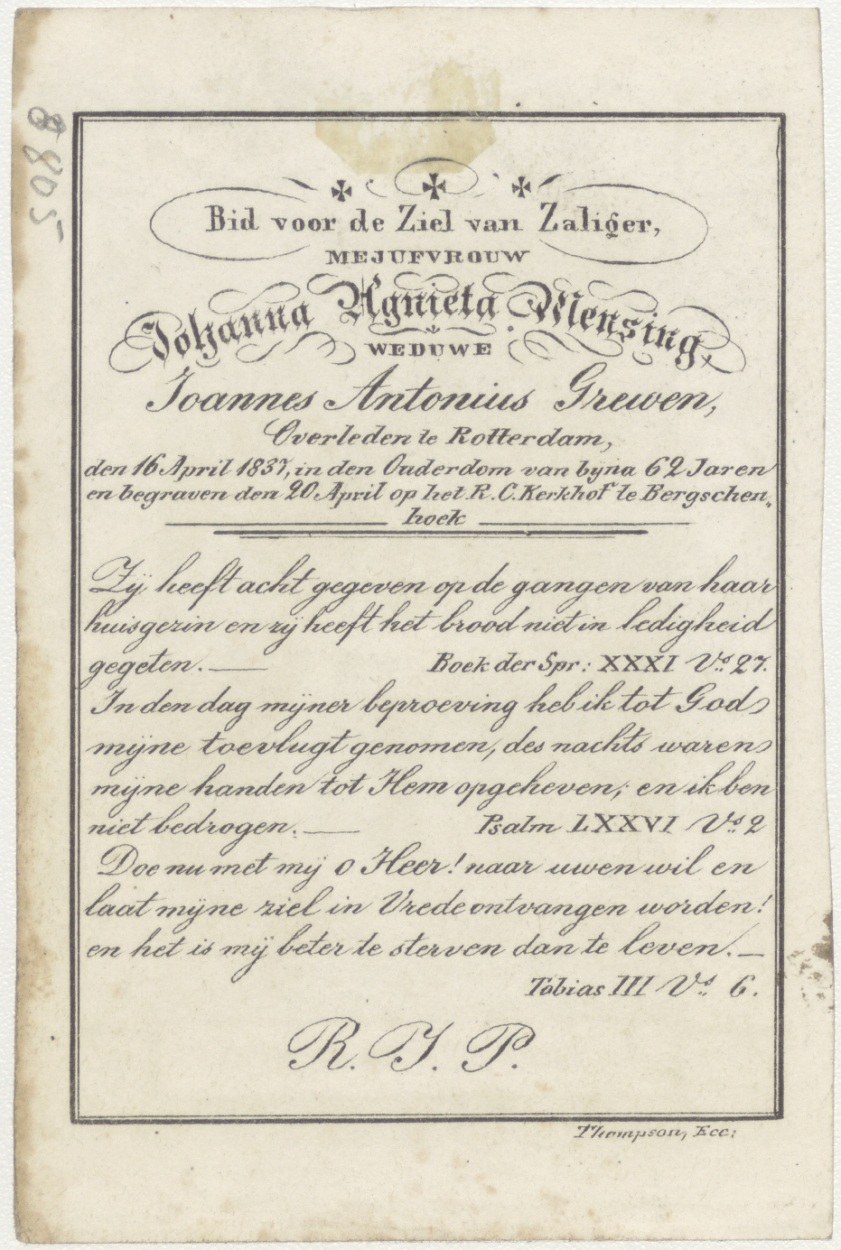 8805
Bid voor de Ziel van Zaliger,
MEJUFVROUW
Johanna Agnieta Mensing,
WEDUWE
Joannes Antonius Grewen,
Overleden te Rotterdam,
den 16 April 1837, in den Ouderdom van byna 62 Jaren
en begraven den 20 April op het R. C. Kerkhof te Bergschen„
hoek
Zij heeft acht gegeven op de gangen van haar
huisgezin en zij heeft het brood niet in ledigheid
gegeten. — Boek der Spr: XXXI Vs. 27.
In den dag mijner beproeving heb ik tot God
mijne toevlugt genomen, des nachts waren
mijne handen tot Hem opgeheven; en ik ben
niet bedrogen. — Psalm LXXVI Vs. 2
Doe nu met mij o Heer! naar uwen wil en
laat mijne ziel in Vrede ontvangen worden!
en het is mij beter te sterven dan te leven. —
Tobias III Vs. 6.
R. I. P.
Thompson, Ecc: